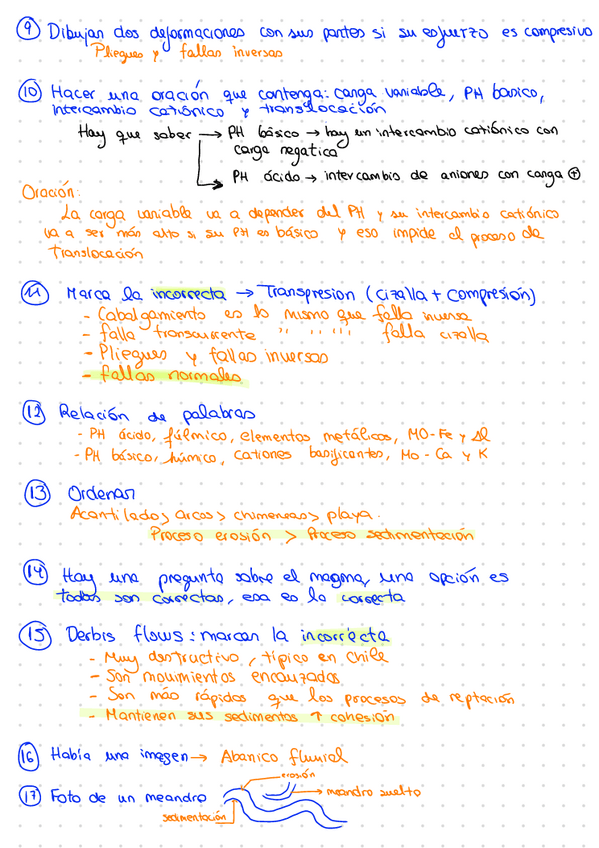 9 Dibujan dos deformaciones con sus partes si su esfuerzo es compresivo
Pliegues y fallas inversas
10 Hacer una oración que contenga: carga variable, PH básico,
intercambio catiónico y translocación
Hay que saber → PH básico → hay un intercambio catiónico con
carga negatica
PH ácido → intercambio de aniones con carga ⊕
Oración:
La carga variable va a depender del PH y su intercambio catiónico
va a ser más alto si su PH es básico y eso impide el proceso de
translocación
11 Marca la incorrecta → Transpresion (cizalla + compresión)
- Cabalgamiento es lo mismo que falla inversa
- falla transcurrente " " " " falla cizalla
- Pliegues y fallas inversas
- fallas normales
12 Relación de palabras
- PH ácido, fúlmico, elementos metálicos, MO-Fe y Al
- PH básico, húmico, cationes basificantes, Mo - Ca y K
13 Ordenar
Acantilado > arcos > chimeneas > playa.
Proceso erosión > Proceso sedimentación
14 Hay una pregunta sobre el magma, una opción es
todas son correctas, esa es la correcta
15 Derbis flows: marcan la incorrecta
- Muy destructivo, típico en Chile
- Son mouimientos encauzados
- Son más rápidos que los procesos de reptación
- Mantienen sus sedimentos ↑ cohesión
16 Había una imagen → Abanico fluvial
erosión
17 Foto de un meandro
meandro suelto
sedimentación